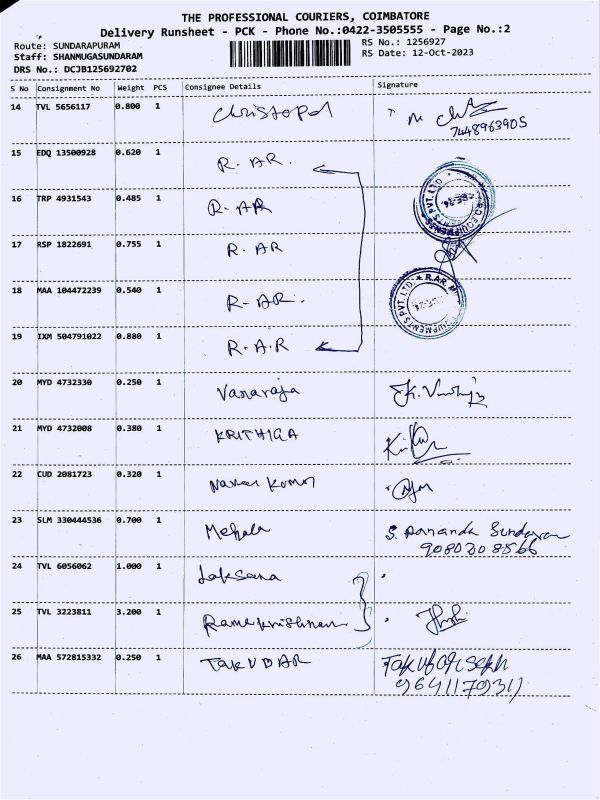 THE PROFESSIONAL COURIERS, COIMBATORE
Delivery Runsheet - PCK - Phone No.:0422-3505555 - Page No.:2
Route: SUNDARAPURAM
RS No.: 1256927
Staff: SHANMUGASUNDARAM
RS Date: 12-Oct-2023
DRS No.: DCJB125692702
S No Consignment No Weight PCS Consignee Details Signature
14 TVL 5656117 0.800 1 Christopol
7448963905
15 EDQ 13500928 0.620 1 R. AR.
16 TRP 4931543 0.485 1 R. AR
17 RSP 1822691 0.755 1 R. AR
18 MAA 104472239 0.540 1 R- AR.
19 IXM 504791022 0.880 1 R.A.R
20 MYD 4732330 0.250 1 Vanaraja
21 MYD 4732008 0.380 1 KRITHIGA
22 CUD 2081723 0.320 1
23 SLM 330444536 0.700 1 Mehala
9080208566
24 TVL 6056062 1.000 1 Laksana
25 TVL 3223811 3.200 1 Ramakrishnan
26 MAA 572815332 0.250 1 TAKUDAR